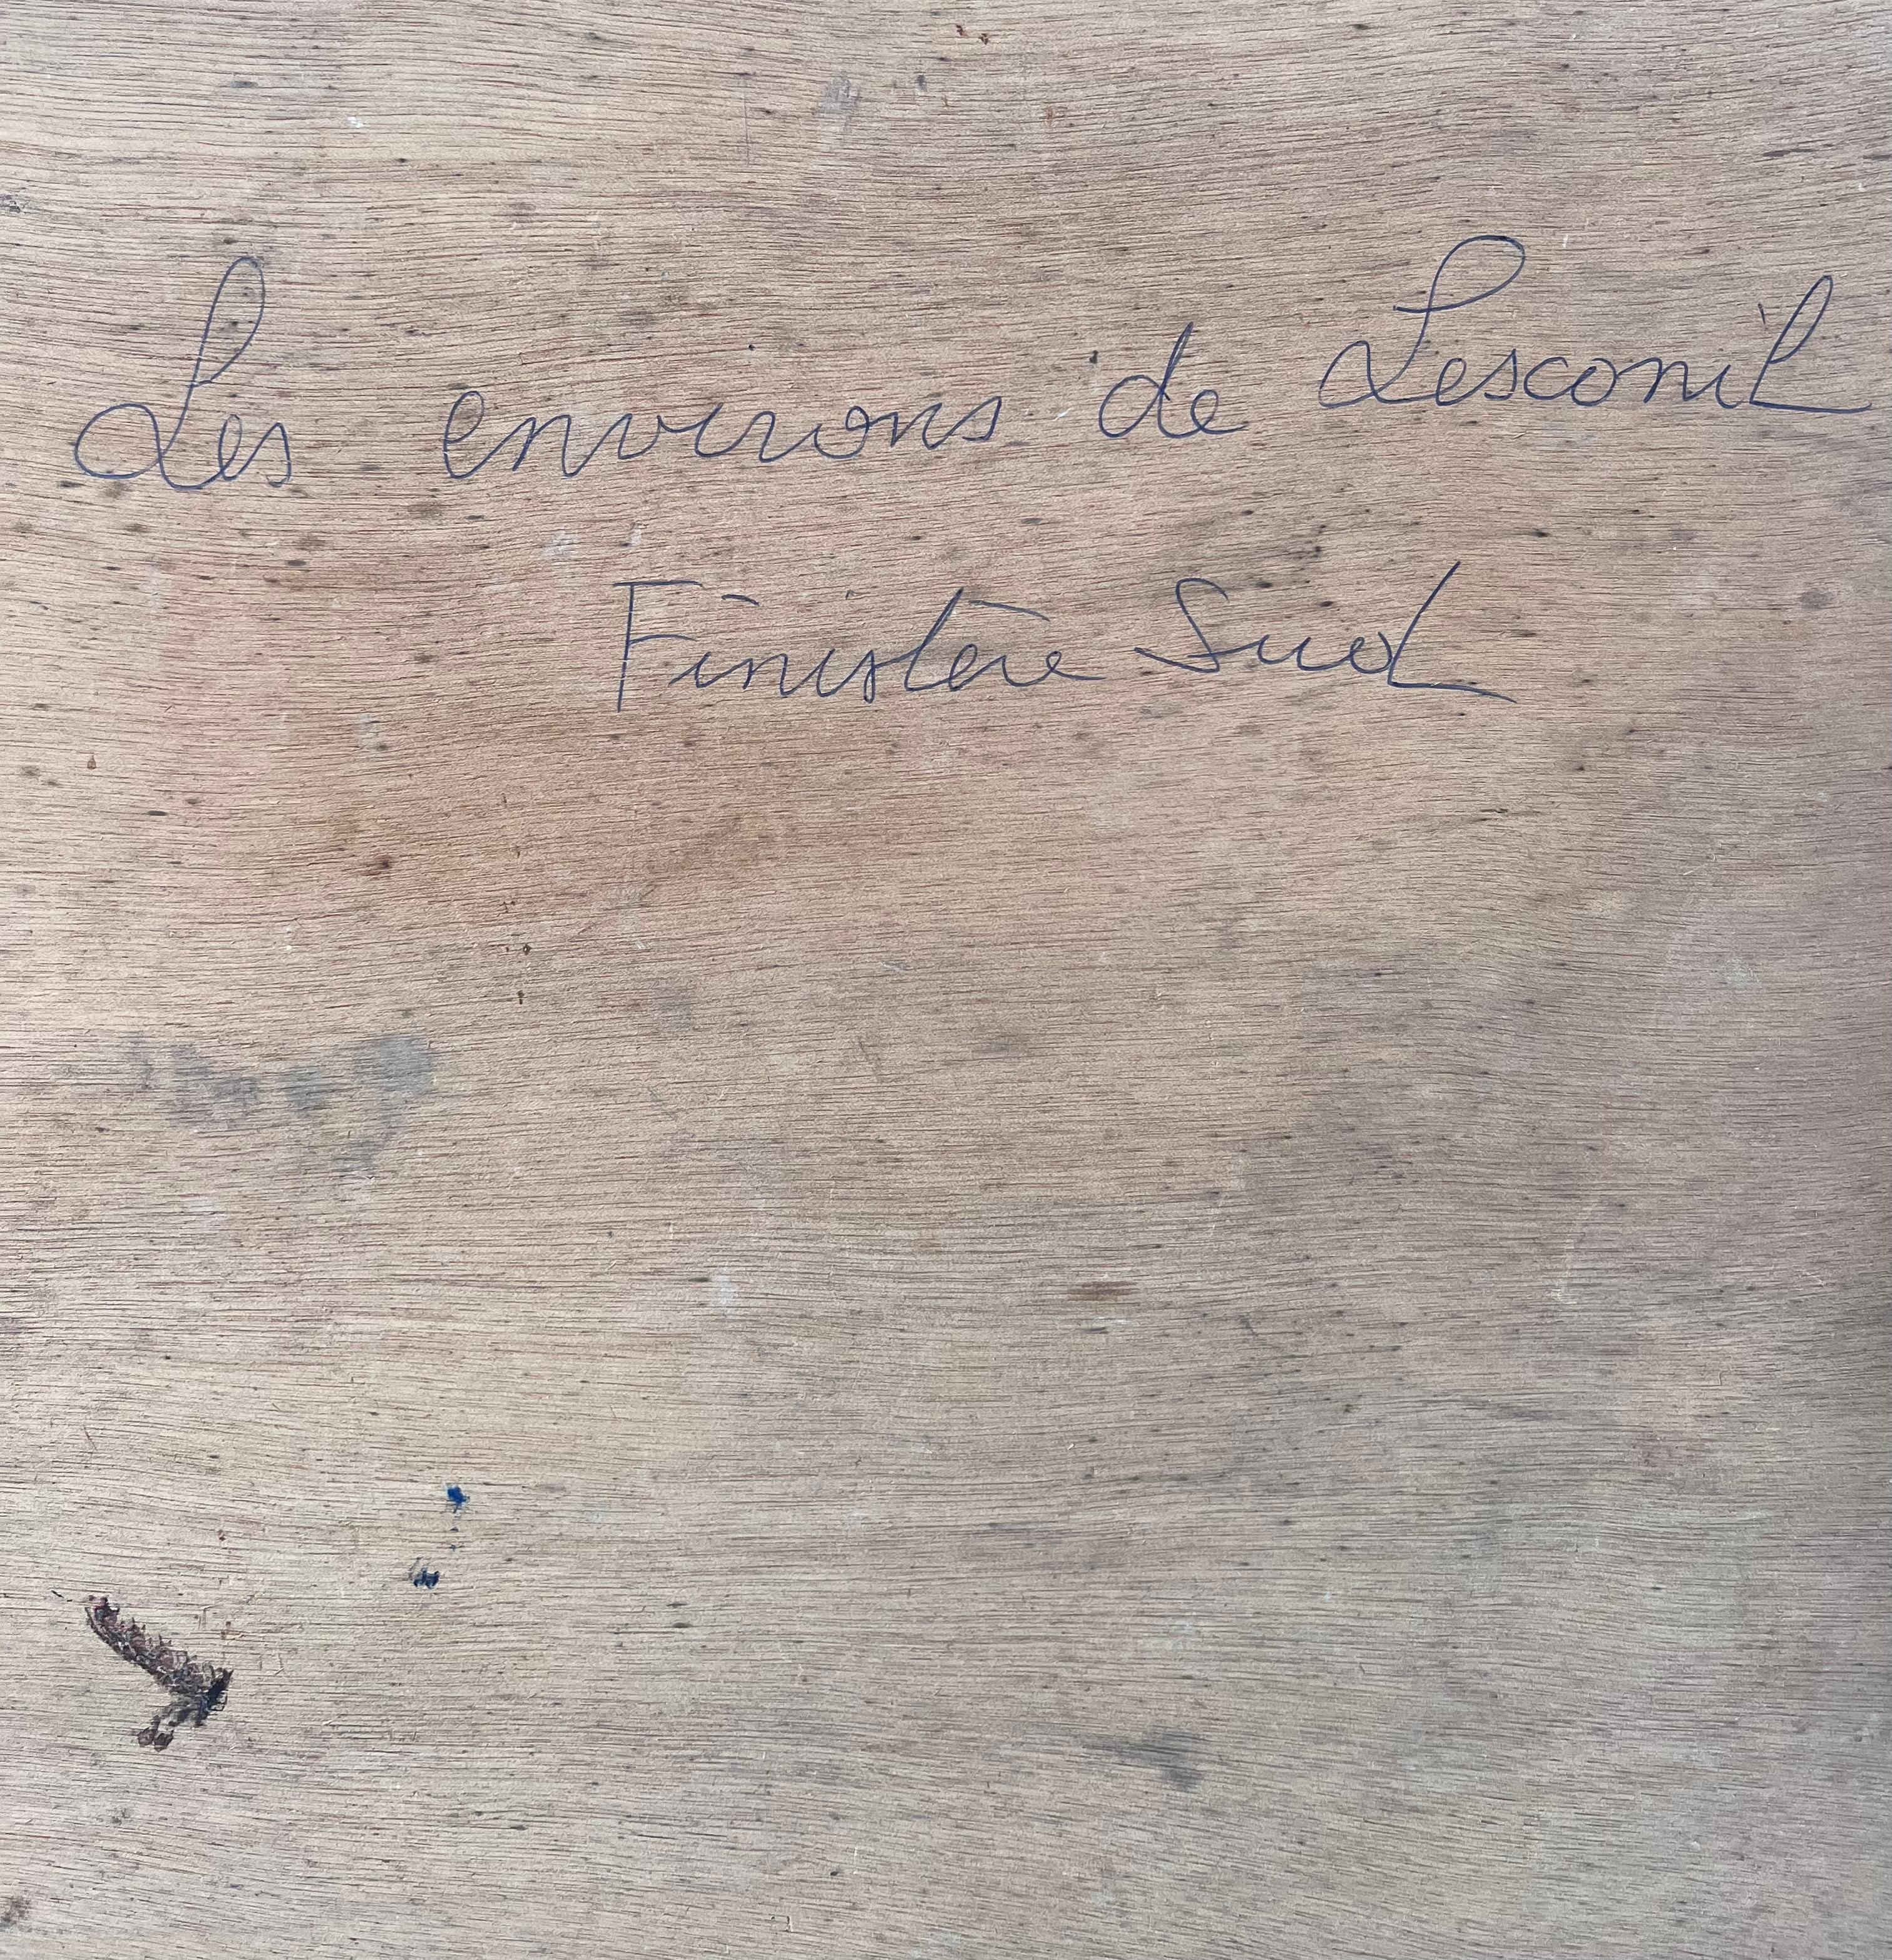 Les environs de Lesconil
Finistère Sud